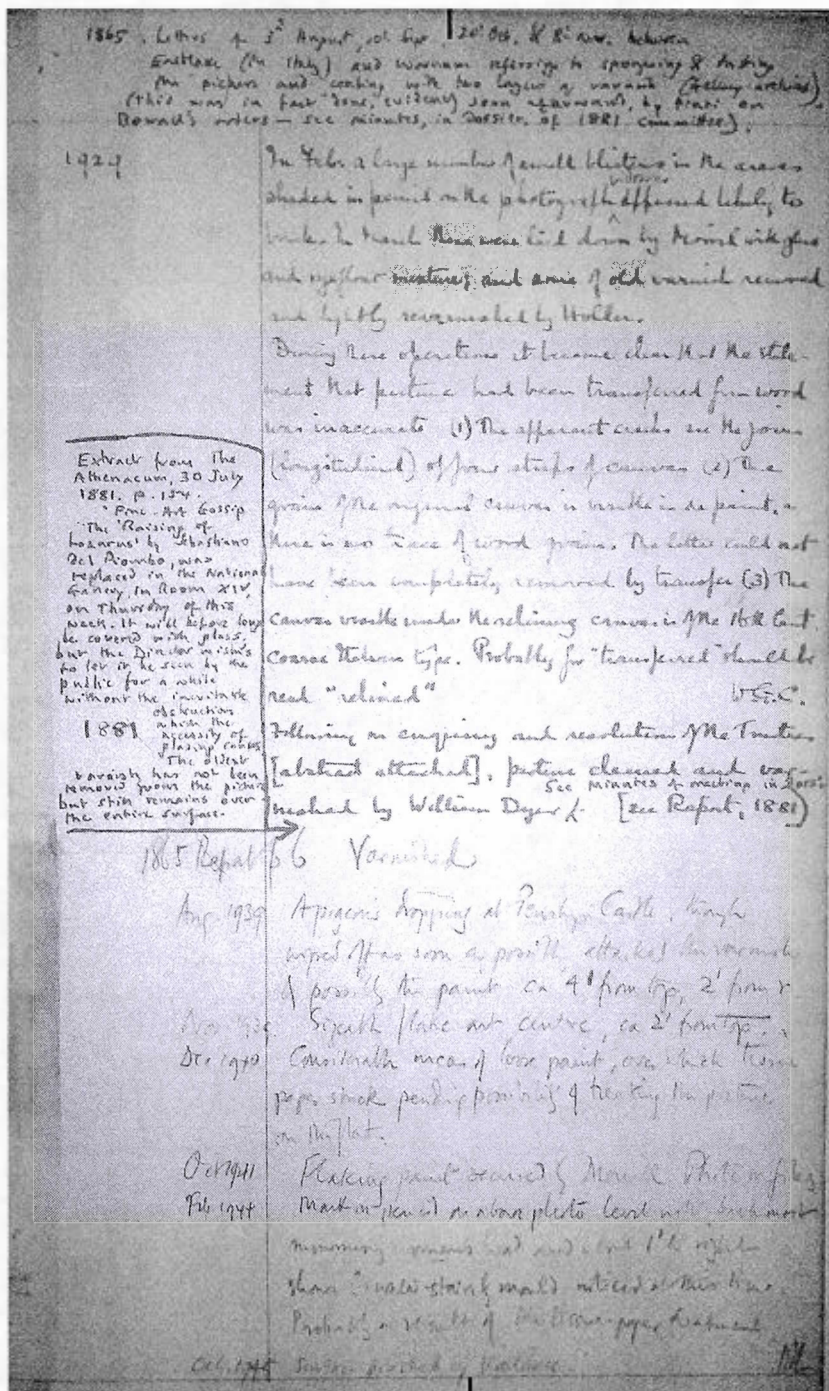 1865. Letters of 3d August, 10t Sep., 20t Oct. & 8t Nov. between
Eastlake (in Italy) and Wornum referring to sponging & dusting
the picture and coating with two layers of varnish (Gallery archives)
(this was in fact done, evidently soon afterward, by Pinti on
Boxall's orders — see minutes, in Dossier, of 1881 committee).
1929
In Feb. a large number of small blisters in the areas
shaded in pencil on the photograph appeared likely to
break. In March these were laid down by Morrill with glue
and mixture and some of old varnish removed
and lightly revarnished by Holder.
During these operations it became clear that the state-
ment that picture had been transferred from wood
was inaccurate (1) The apparent cracks are the joins
(longitudinal) of four strips of canvas (2) The
grain of the original canvas is visible in the paint, &
there is no trace of wood grain. The latter could not
have been completely removed by transfer (3) The
canvas visible under the relining canvas is of the 16th Cent.
coarse Italian type. Probably for "transferred" should be
read "relined" W.G.C.
Extract from The
Athenaeum, 30 July
1881. p. 154.
"Fine-Art Gossip
"The 'Raising of
Lazarus' by Sebastiano
Del Piombo, was
replaced in the National
Gallery, in Room XIV,
on Thursday of this
week. It will before long
be covered with glass,
but the Director wishes
to let it be seen by the
public for a while
without the inevitable
obstruction
which the
necessity of
glazing causes
The oldest
varnish has not been
removed from the picture
but still remains over
the entire surface.
1881
Following an enquiry and resolution of the Trustees
[abstract attached], picture cleaned and var-
See minutes of meeting in Dossier
nished by William Dyer [see Report, 1881]
1865 Report p 6 Varnished
Aug 1939 A pigeon's dropping at Penrhyn Castle, though
wiped off as soon as possible attacked the varnish
& possibly the paint ca 4' from top, 2' from r
Slight flake at centre, ca 2' from top.
Dec 1940 Considerable areas of loose paint, over which tissue
paper stuck pending possibility of treating the picture
on the flat.
Oct 1941 Flaking paint secured by Morrill Photo in files
Feb 1944 Mark in pencil on above photo level with
woman's head and about 1' to right
shows water-stain & mould noticed at this time.
Probably a result of the tissue-paper treatment
Surface polished by